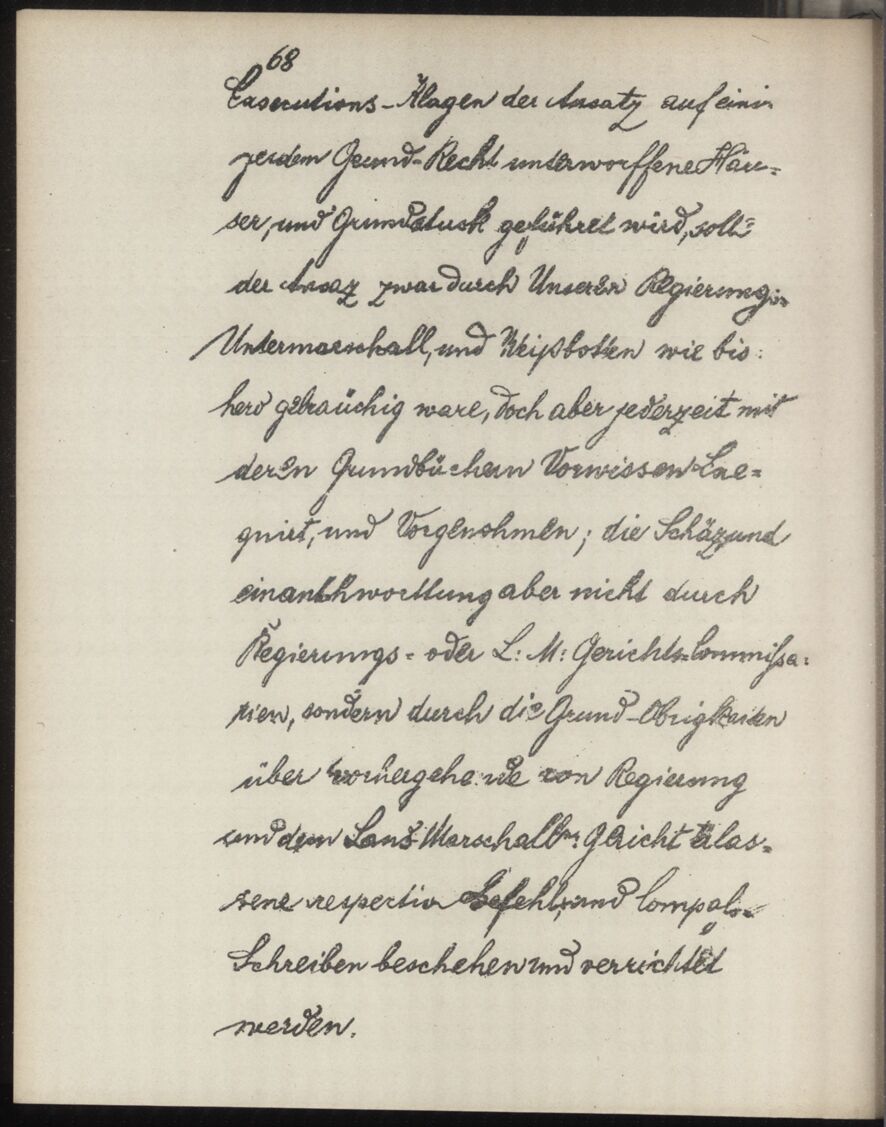 68
Executions-Klagen der Ansatz auf eini-
zer dem Grund-Recht unterworffene Häu-
ser, und Grundstuck geführet wird, solle
der Ansaz zwar durch Unseren Regierungs-
Untermarschall, und Weißbotten wie bis:
hero gebräuchig ware, doch aber jederzeit mit
deren Grundbüchern Vorwissen Exe=
quirt, und Vorgenohmen; die Schäzund
einanthworttung aber nicht durch
Regierungs= oder L: M: Gerichts=Commissa:
rien, sondern durch die Grund-Obrigkeiten
über vorhergehende von Regierung
und dem Land-Marschall: Gericht erlas=
sene respective Befehl, und Compaß-
Schreiben beschehen und verrichtet
werden.